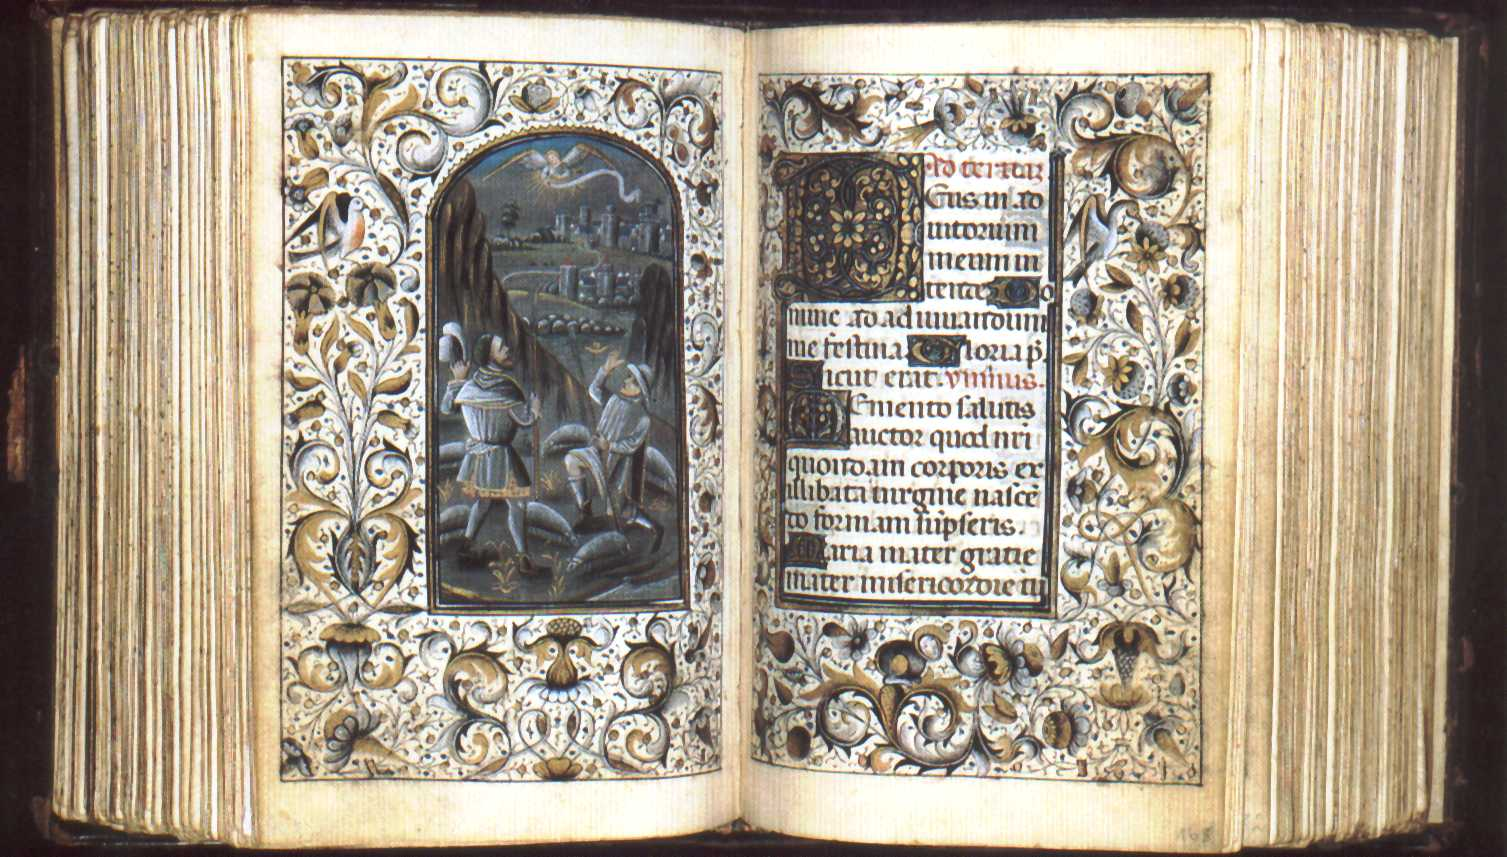 Ad terciam
Eus in ad
iutorium
meum in
tende Do
mine ad adiuvandum
me festina Gloria p̄.
Sicut erat. ympnus.
Memento salutis
auctor quod nr̄i
quondam corporis ex
illibata virgine nasce
do formam sūpseris.
Maria mater gratie
mater misericordie tu
168